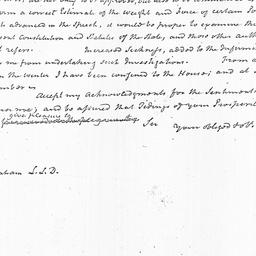 form a correct Estimate of the weight and Force of certain
advanced in the Speech, it would be proper to examine the
Constitution and Statutes of the State, and those other auth
refers. Increased Sickness, added to the Infirmi
me from undertaking such Investigations. From
the winter I have been confined to the House; and at
Chamber in
Accept my Acknowledgments for the Sentiments
and be assured that Tidings of your Prosperit
give pleasure to
Sir your obliged
L.L.D.